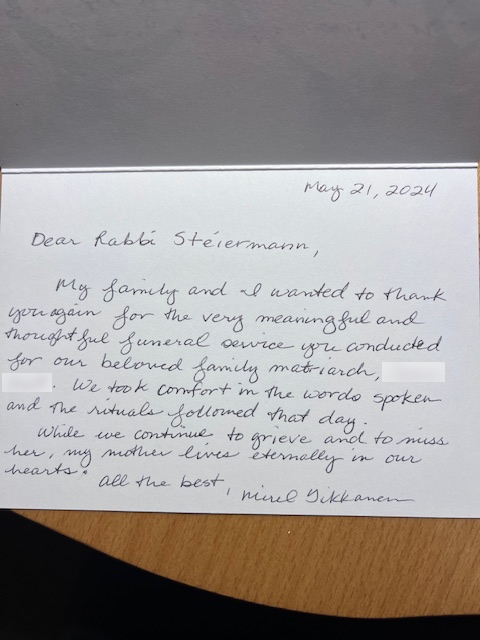 May 21, 2024
Dear Rabbi Steiermann,
My family and I wanted to thank
you again for the very meaningful and
thoughtful funeral service you conducted
for our beloved family matriarch,
. We took comfort in the words spoken
and the rituals followed that day.
While we continue to grieve and to miss
her, my mother lives eternally in our
hearts.
All the best,